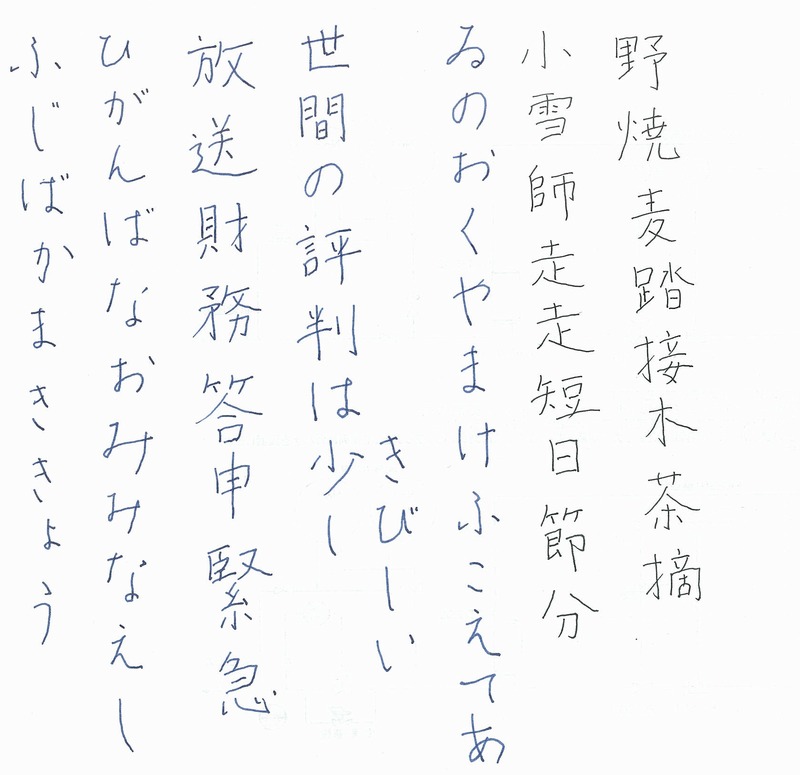 野焼麦踏接木茶摘
小雪師走走短日節分
ゐのおくやまけふこえてあ
きびしい
世間の評判は少し
放送財務答申緊急
ひがんばなおみみなえし
ふじばかまききょう